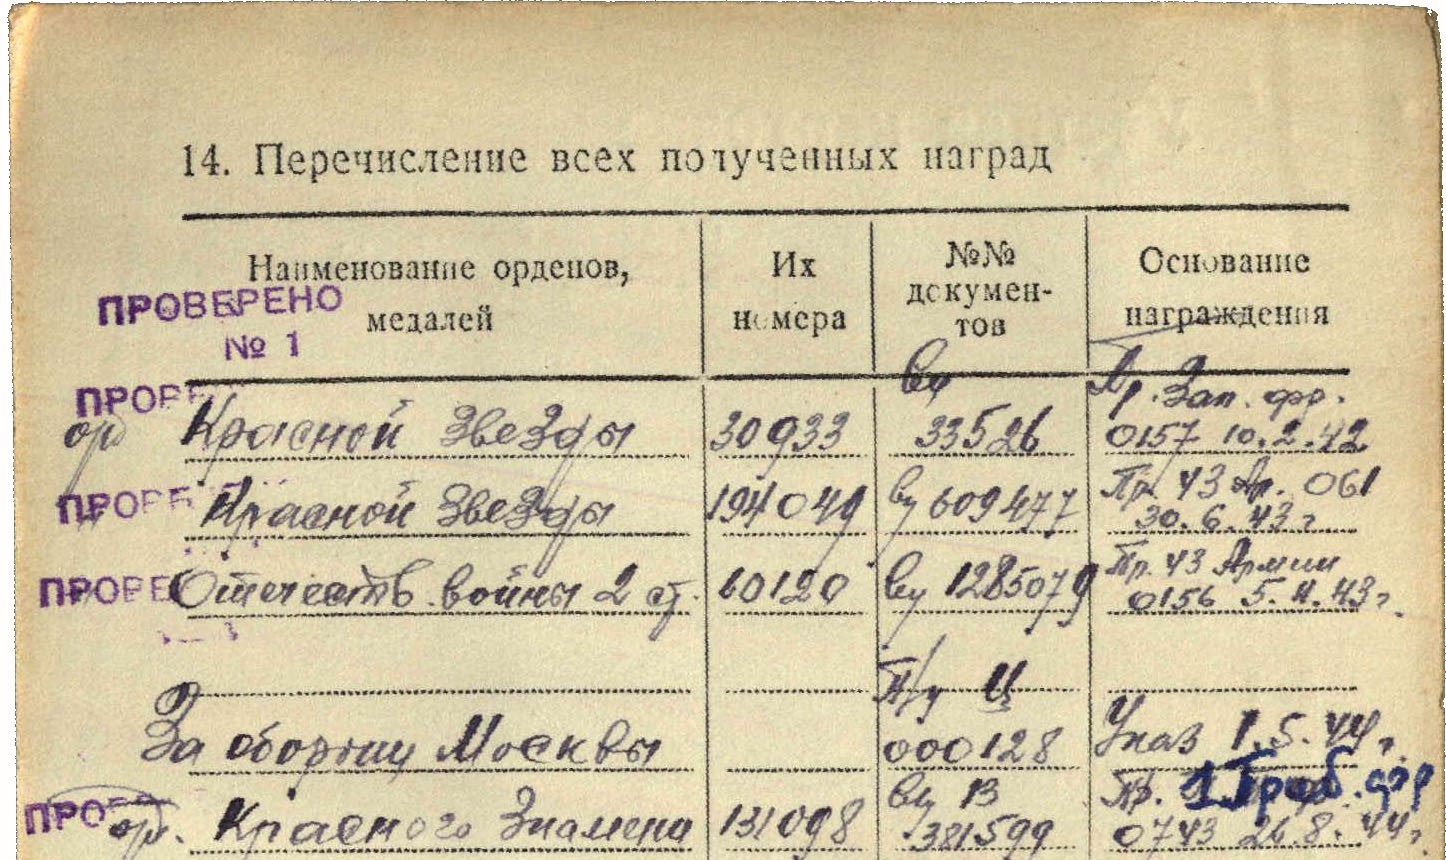 14. Перечисление всех полученных наград
Наименование орденов, медалей
Их номера
№№ докумен-
тов
Основание награждения
ПРОВЕРЕНО
№ 1
Вц Пр. Зап. фр.
ПРОВЕ
орд Красной Звезды 30933 33526 0157 10.2.42
ПРОВЕ Красной Звезды 194049 Вц 609477 Пр. 43 Ар. 061
30.6.43 г
ПРОВЕ Отечеств. войны 2 ст. 60120 Вц 1285079 Пр. 43 Армии
0156 5.11.43 г.
Ц
За оборону Москвы 000128 Указ 1.5.44 г.
ПРОВЕ орд. Красного Знамени 131098 381599 Пр. 1 Приб. фр
0743 26.8.44 г.